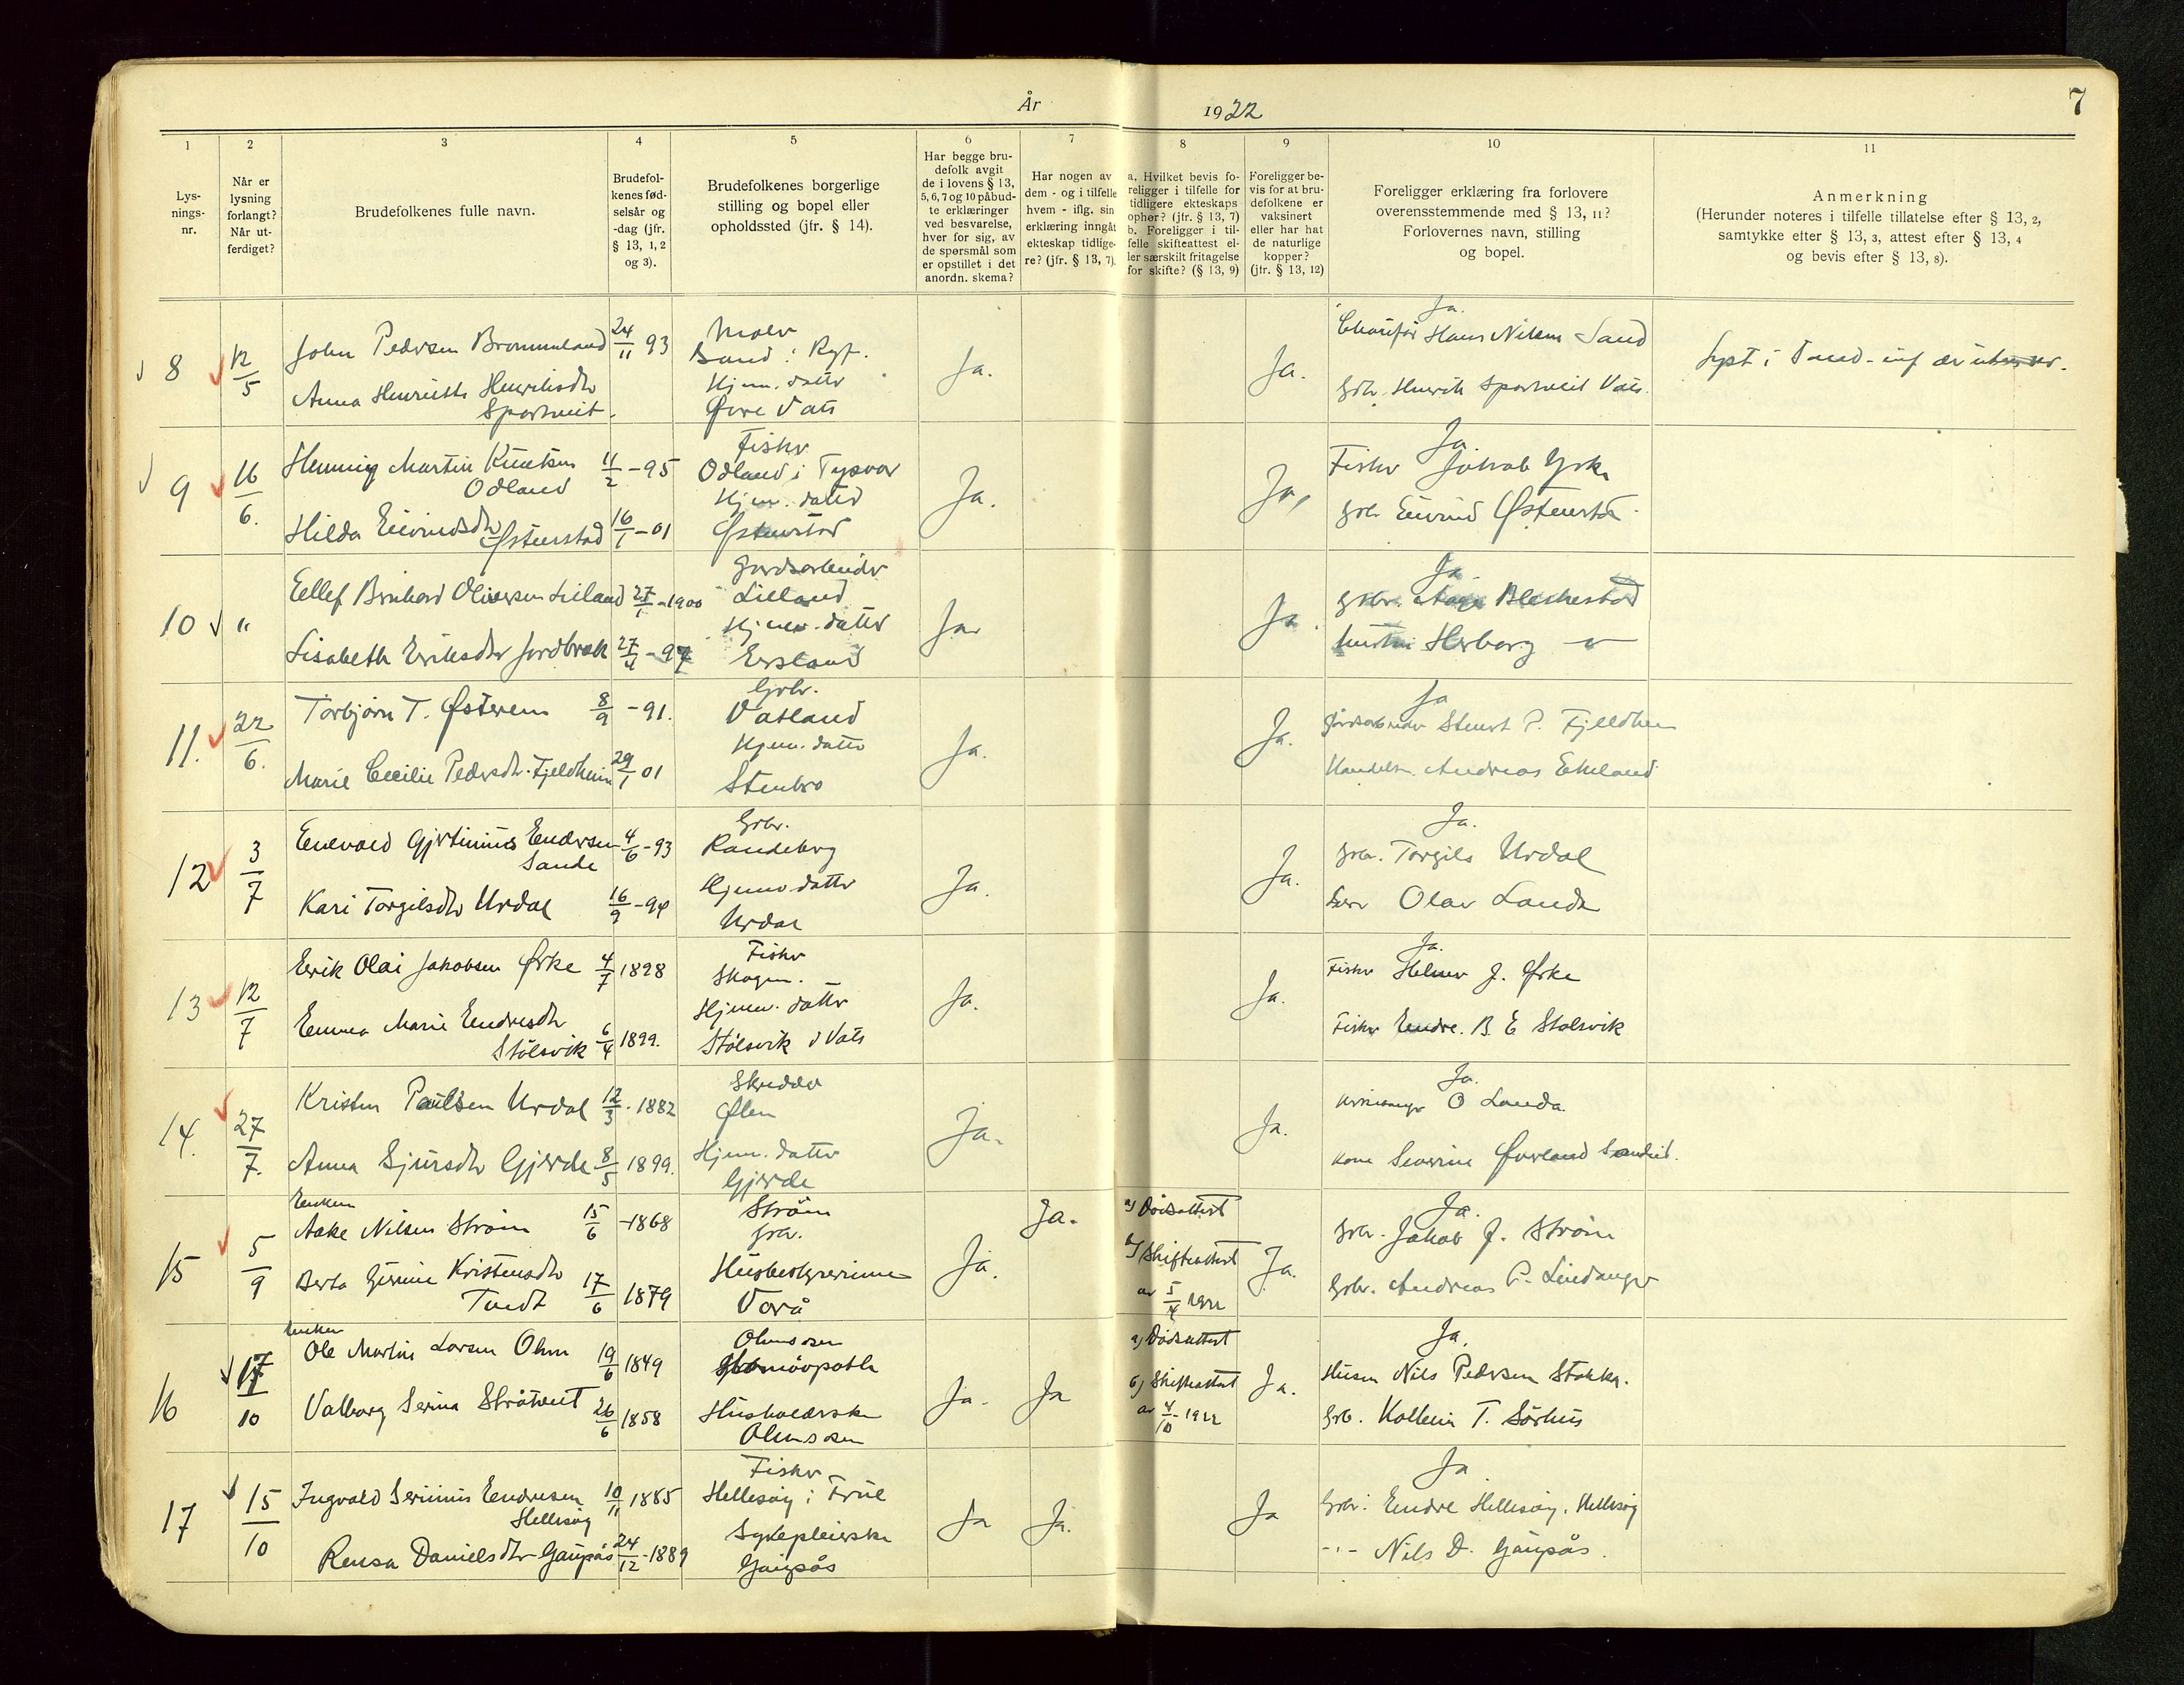 År 1922
7
1 2 3 4 5 6 7 8 9 10 11
Lys-
nings-
nr.
Når er
lysning
forlangt?
Når ut-
ferdiget?
Brudefolkenes fulle navn.
Brudefol-
kenes fød-
selsår og
-dag (jfr.
§ 13, 1, 2
og 3).
Brudefolkenes borgerlige
stilling og bopel eller
opholdssted (jfr. § 14).
Har begge bru-
defolk avgit
de i lovens § 13,
5, 6, 7 og 10 påbud-
te erklæringer
ved besvarelse,
hver for sig, av
de spørsmål som
er opstillet i det
anordn. skema?
Har nogen av
dem - og i tilfelle
hvem - iflg. sin
erklæring inngåt
ekteskap tidlige-
re? (jfr. § 13, 7).
a. Hvilket bevis fo-
religger i tilfelle for
tidligere ekteskaps
ophør? (jfr. § 13, 7)
b. Foreligger i til-
felle skifteattest el-
ler særskilt fritagelse
for skifte? (§ 13, 9)
Foreligger be-
vis for at bru-
defolkene er
vaksinert
eller har hat
de naturlige
kopper?
(jfr. § 13, 12)
Foreligger erklæring fra forlovere
overensstemmende med § 13, 11?
Forlovernes navn, stilling
og bopel.
Anmerkning
(Herunder noteres i tilfelle tillatelse efter § 13, 2,
samtykke efter § 13, 3, attest efter § 13, 4
og bevis efter § 13, 8).
8
12/5
John Pedersen Brommeland 24/11 93
Anna Henriette Henriksdtr
Sportveit.
Maler
Sand i Ryf.
Hjem. datter
Øvre Vats
Ja.
Ja.
Ja.
Chaufør Hans Nilsen Sand
Gbr. Henrik Sportveit Vats.
Lyst i Sand
9
16/6.
Henning Martin Knutsen 11/2 - 95
Odland
Hilda Eivindsdtr Østenstad 16/1 - 01
Fisker
Odland i Tysvær
Hjem. datter
Østenstad
Ja.
Ja,
Ja
Fisker Jakob Yrke
Gbr. Eivind Østenstad
10 "
Eellef Bernhard Oliversen Lieland 27/1 - 1900
Lisabeth Eriksdtr Jordbrek 27/4 - 97
Gardsarbeider
Lieland
Hjem. datter
Ersland
Ja
Ja.
Ja.
Grbr. Aage Bleskestad
Herborg
11.
22/6.
Torbjørn T. Østerem 8/9 - 91.
Marie Cecilie Pedersdtr. Fjeldheim 29/1 01
Grbr.
Vatland
Hjem. datter
Stenbro
Ja.
Ja.
Ja
Gårdsarbeider Stenert P. Fjeldheim
Handelsm. Andreas Ekeland
12
3/7
Enevald Gjertinius Endersen 4/6 - 93
Sande
Kari Torgilsdtr Urdal 16/9 - 94
Grbr.
Randeberg
Hjemv. datter
Urdal
Ja.
Ja.
Ja.
Grbr. Torgils Urdal
Olav Landa
13
12/7
Eerik Olai Jakobsen Ørke 4/7 1898
Emma Marie Endresdtr
Stølsvik 6/4 1899.
Fisker
Skogen.
Hjemv. datter
Stølsvik i Vats
Ja.
Ja.
Ja.
Fisker Helmer J. Ørke
Fisker Endre. B. E Stølsvik
14.
27/7.
Kristen Paulsen Urdal 12/3. 1882
Anna Sjursdtr Gjerde 8/5 1899.
Skredder
Ølen
Hjem. datter
Gjerde
Ja.
Ja.
Ja.
Kirkesanger O Landa.
Kone Severine Øverland Sandeid.
15
5/9
Enkem
Aake Nilsen Strøm 15/6 - 1868
Berta Gurine Kristensdtr
Tvedt 17/6 1879
Strøm
Grbr.
Husbestyrerinne
Vorå
Ja.
Ja.
a) Dødsattest
b) Skifteattest
av 5/4 1922
Ja.
Ja.
Grbr. Jakob J. Strøm
Grbr. Andreas P. Lindanger
16
17/10
Enkem
Ole Martin Larsen Ohm 19/6 1849
Valborg Serina Stråtveit 26/6 1858
Ohmsosen
Homöopath
Husholderske
Ohmsosen
Ja.
Ja
a) Dødsattest
b) Skifteattest
av 4/10 - 1922
Ja.
Ja.
Husm Nils Pedersen Stakka.
Grb. Kolbein T. Sørhus
17
15/10
Ingvald Severinus Eendresen 10/11 1885
Hellesøy
Rensa Danielsdtr Gaupås 24/12 - 1889
Fisker
Hellesøy i
Sykepleierske
Gaupås
Ja
Ja.
Ja
Ja
Grbr. Endre Hellesøy, Hellesøy
-"- Nils D. Gaupås.